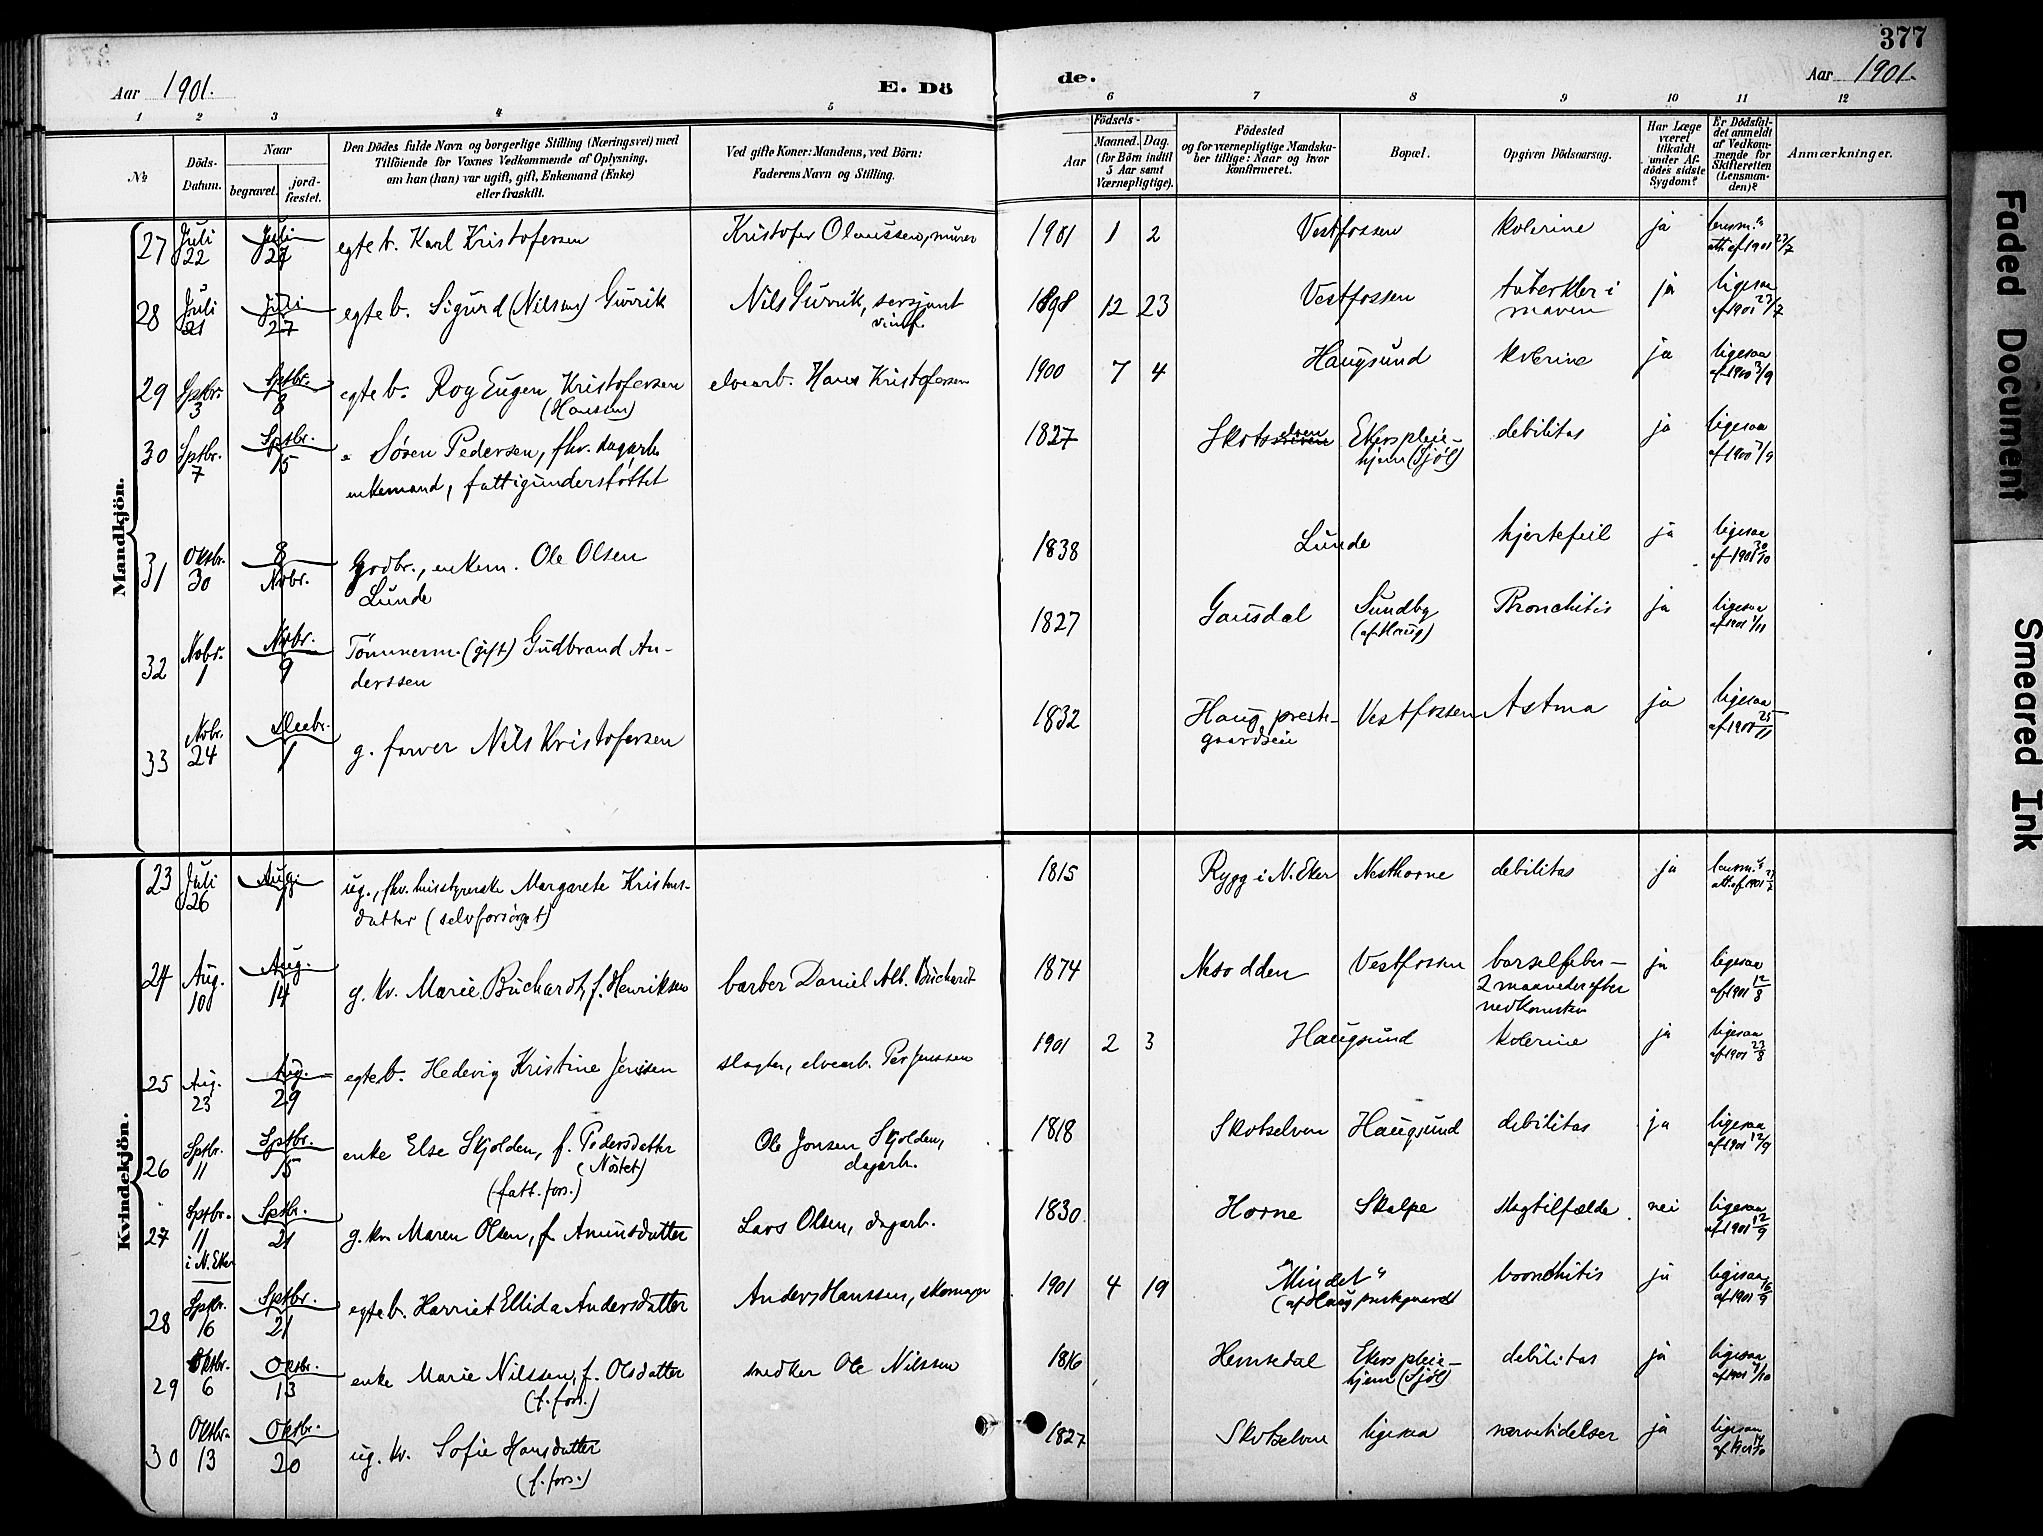 377
Aar 1901.
E. Dö
de.
Aar 1901.
1 2 3 4 5 6 7 8 9 10 11 12
№
Döds-
Datum.
Naar
begravet.
jord-
fæstet.
Den Dödes fulde Navn og borgerlige Stilling (Næringsvei) med
Tilföiende for Voxnes Vedkommende af Oplysning,
om han (hun) var ugift, gift, Enkemand (Enke)
eller fraskilt.
Ved gifte Koner: Mandens, ved Börn:
Faderens Navn og Stilling.
Födsels-
Aar
Maaned.
Dag.
(for Börn indtil
5 Aar samt
Værnepligtige).
Födested
og for værnepligtige Mandska-
ber tillige: Naar og hvor
konfirmeret.
Bopæl.
Opgiven Dödsaarsag.
Har Læge
været
tilkaldt
under Af-
dödes sidste
Sygdom?
Er Dödsfal-
det anmeldt
af Vedkom-
mende for
Skifteretten
(Lensman-
den)?
Anmærkninger.
Mandkjön.
27 Juli 22 Juli 27 egteb. Karl Kristofersen Kristofer Olaussen, murer 1901 1 2 Vestfossen kolerine ja lensm.s att. af 1901 23/7
28 Juli 21 Juli 27 egteb. Sigurd (Nilsen) Gurrik Nils Gurrik, sersjant 1898 12 23 Vestfossen tuberkler i maven ja ligesaa af 1901 23/7
29 Sptbr. 3 Sptbr. 8 egteb. Roy Eugen Kristofersen (Hansen) elvearb. Hans Kristofersen 1900 7 4 Haugsund kolerine ja ligesaa af 1900 3/9
30 Sptbr. 7 Sptbr. 15 Søren Pedersen, fhv. dagarb. 1827 Skotselven Ekers pleie- hjem (Sjøl) debilitas ja ligesaa af 1900 7/9
enkemand, fattigunderstøttet
31 Oktbr. 30 8 Novbr. Grdbr., enkem. Ole Olsen 1838 Lunde hjertefeil ja ligesaa af 1901 30/10
Lunde
32 Novbr. 1 Novbr. 9 Tömmerm. (gift) Gudbrand An- 1827 Gausdal Sundby (af Haug) Bronchitis ja ligesaa af 1901 1/11
derssen
33 Novbr. 24 Decbr. 1 g. farver Nils Kristofersen 1832 Haug prest- gaardseie Vestfossen Astma ja ligesaa af 1901 25/11
Kvindekjön.
23 Juli 26 Aug. 1 ug., fhv. husstyrerske Margarete Kristens- 1815 Rygg i N. Eker Nesthorne debilitas ja lensm.s att. af 1901 27/7
datter (selvforsørget)
24 Aug. 10 Aug. 14 g. kv. Marie Buchardt, f. Henriksen barber Daniel Alb. Buchardt 1874 Nesodden Vestfossen barselfeber - 2 maaneder efter nedkomsten ja ligesaa af 1901 12/8
25 Aug. 23 Aug. 29 egteb. Hedevig Kristine Jenssen slagter, elvearb. Per Jenssen 1901 2 3 Haugsund kolerine ja ligesaa af 1901 23/8
26 Sptbr. 11 Sptbr. 15 enke Else Skjolden, f. Pedersdatter (Nöstet) (fatt. fors.) Ole Jonsen Skjolden, dagarb. 1818 Skotselven Haugsund debilitas ja ligesaa af 1901 12/9
27 Sptbr. 11 i N. Eker Sptbr. 21 g. kv. Maren Olsen, f. Amundsdatter Lars Olsen, dagarb. 1830 Horne Skalpe slagtilfælde nei ligesaa af 1901 12/9
28 Sptbr. 16 Sptbr. 21 egteb. Harriet Ellida Andersdatter Anders Hanssen, skomager 1901 4 19 "Mindet" (af Haug prestgaard) bronchitis ja ligesaa af 1901 16/9
29 Oktbr. 6 Oktbr. 13 enke Marie Nilssen, f. Olsdatter (f. fors.) snedker Ole Nilssen 1816 Hemsedal Ekers pleie- hjem (Sjøl) debilitas ja ligesaa af 1901 7/10
30 Oktbr. 13 Oktbr. 20 ug. kv. Sofie Hansdatter (f. fors.) 1827 Skotselven ligesaa nervelidelser ja ligesaa af 1901 14/10
Faded Document
Smeared Ink